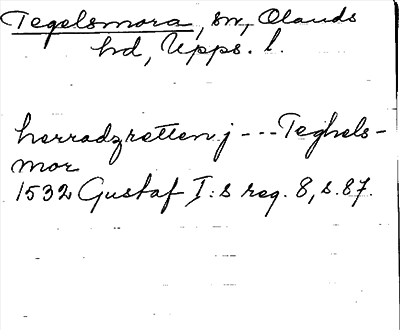 Tegelsmora, sn, Olands
hd, Upps. l.
herradzretten j --- Teghels-
mor
1532 Gustaf I:s reg. 8, s. 87.